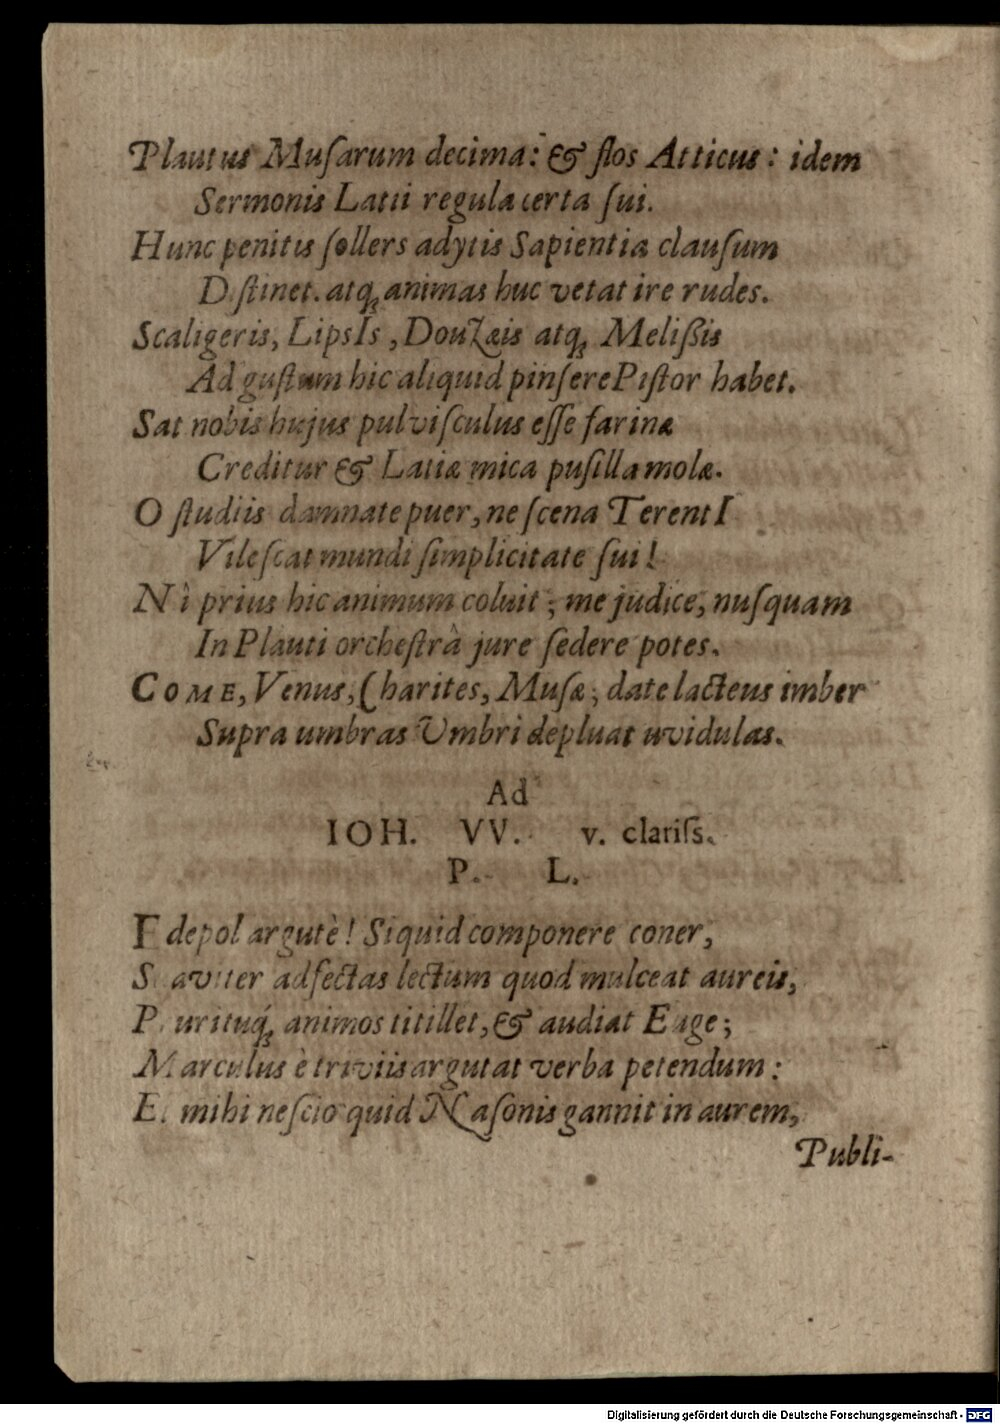 Plautus Muſarum decima: & flos Atticus: idem
Sermonis Latii regula certa ſui.
Hunc penitis ſollers adytis Sapientia clauſum
Diſtinet. atq; animas huc vetat ire rudes.
Scaligeris, LipsIs, Douzæis atq; Melißis
Ad guſtum hic aliquid pinſere Piſtor habet.
Sat nobis hujus pulviſculus eſſe farinæ
Creditur & Latiæ mica puſilla molæ.
O ſtudiis damnate puer, ne ſcena TerentI
Vileſcat mundi ſimplicitate ſui!
Nì prius hic animum coluit; me judice, nuſquam
In Plauti orcheſtrâ jure ſedere potes.
COME, Venus, Charites, Muſæ; date lacteus imber
Supra umbras Umbri depluat uvidulas.
Ad
IOH. VV. v. clariſs.
P. L.
Edepol argutè! Siquid componere coner,
Suaviter adfectas lectum quod mulceat aureis,
Prurituq́; animos titillet, & audiat Euge;
Marculus è triviis argutat verba petendum:
Et mihi neſcio quid Naſonis gannit in aurem,
Publi-
Digitalisierung gefördert durch die Deutsche Forschungsgemeinschaft - DFG